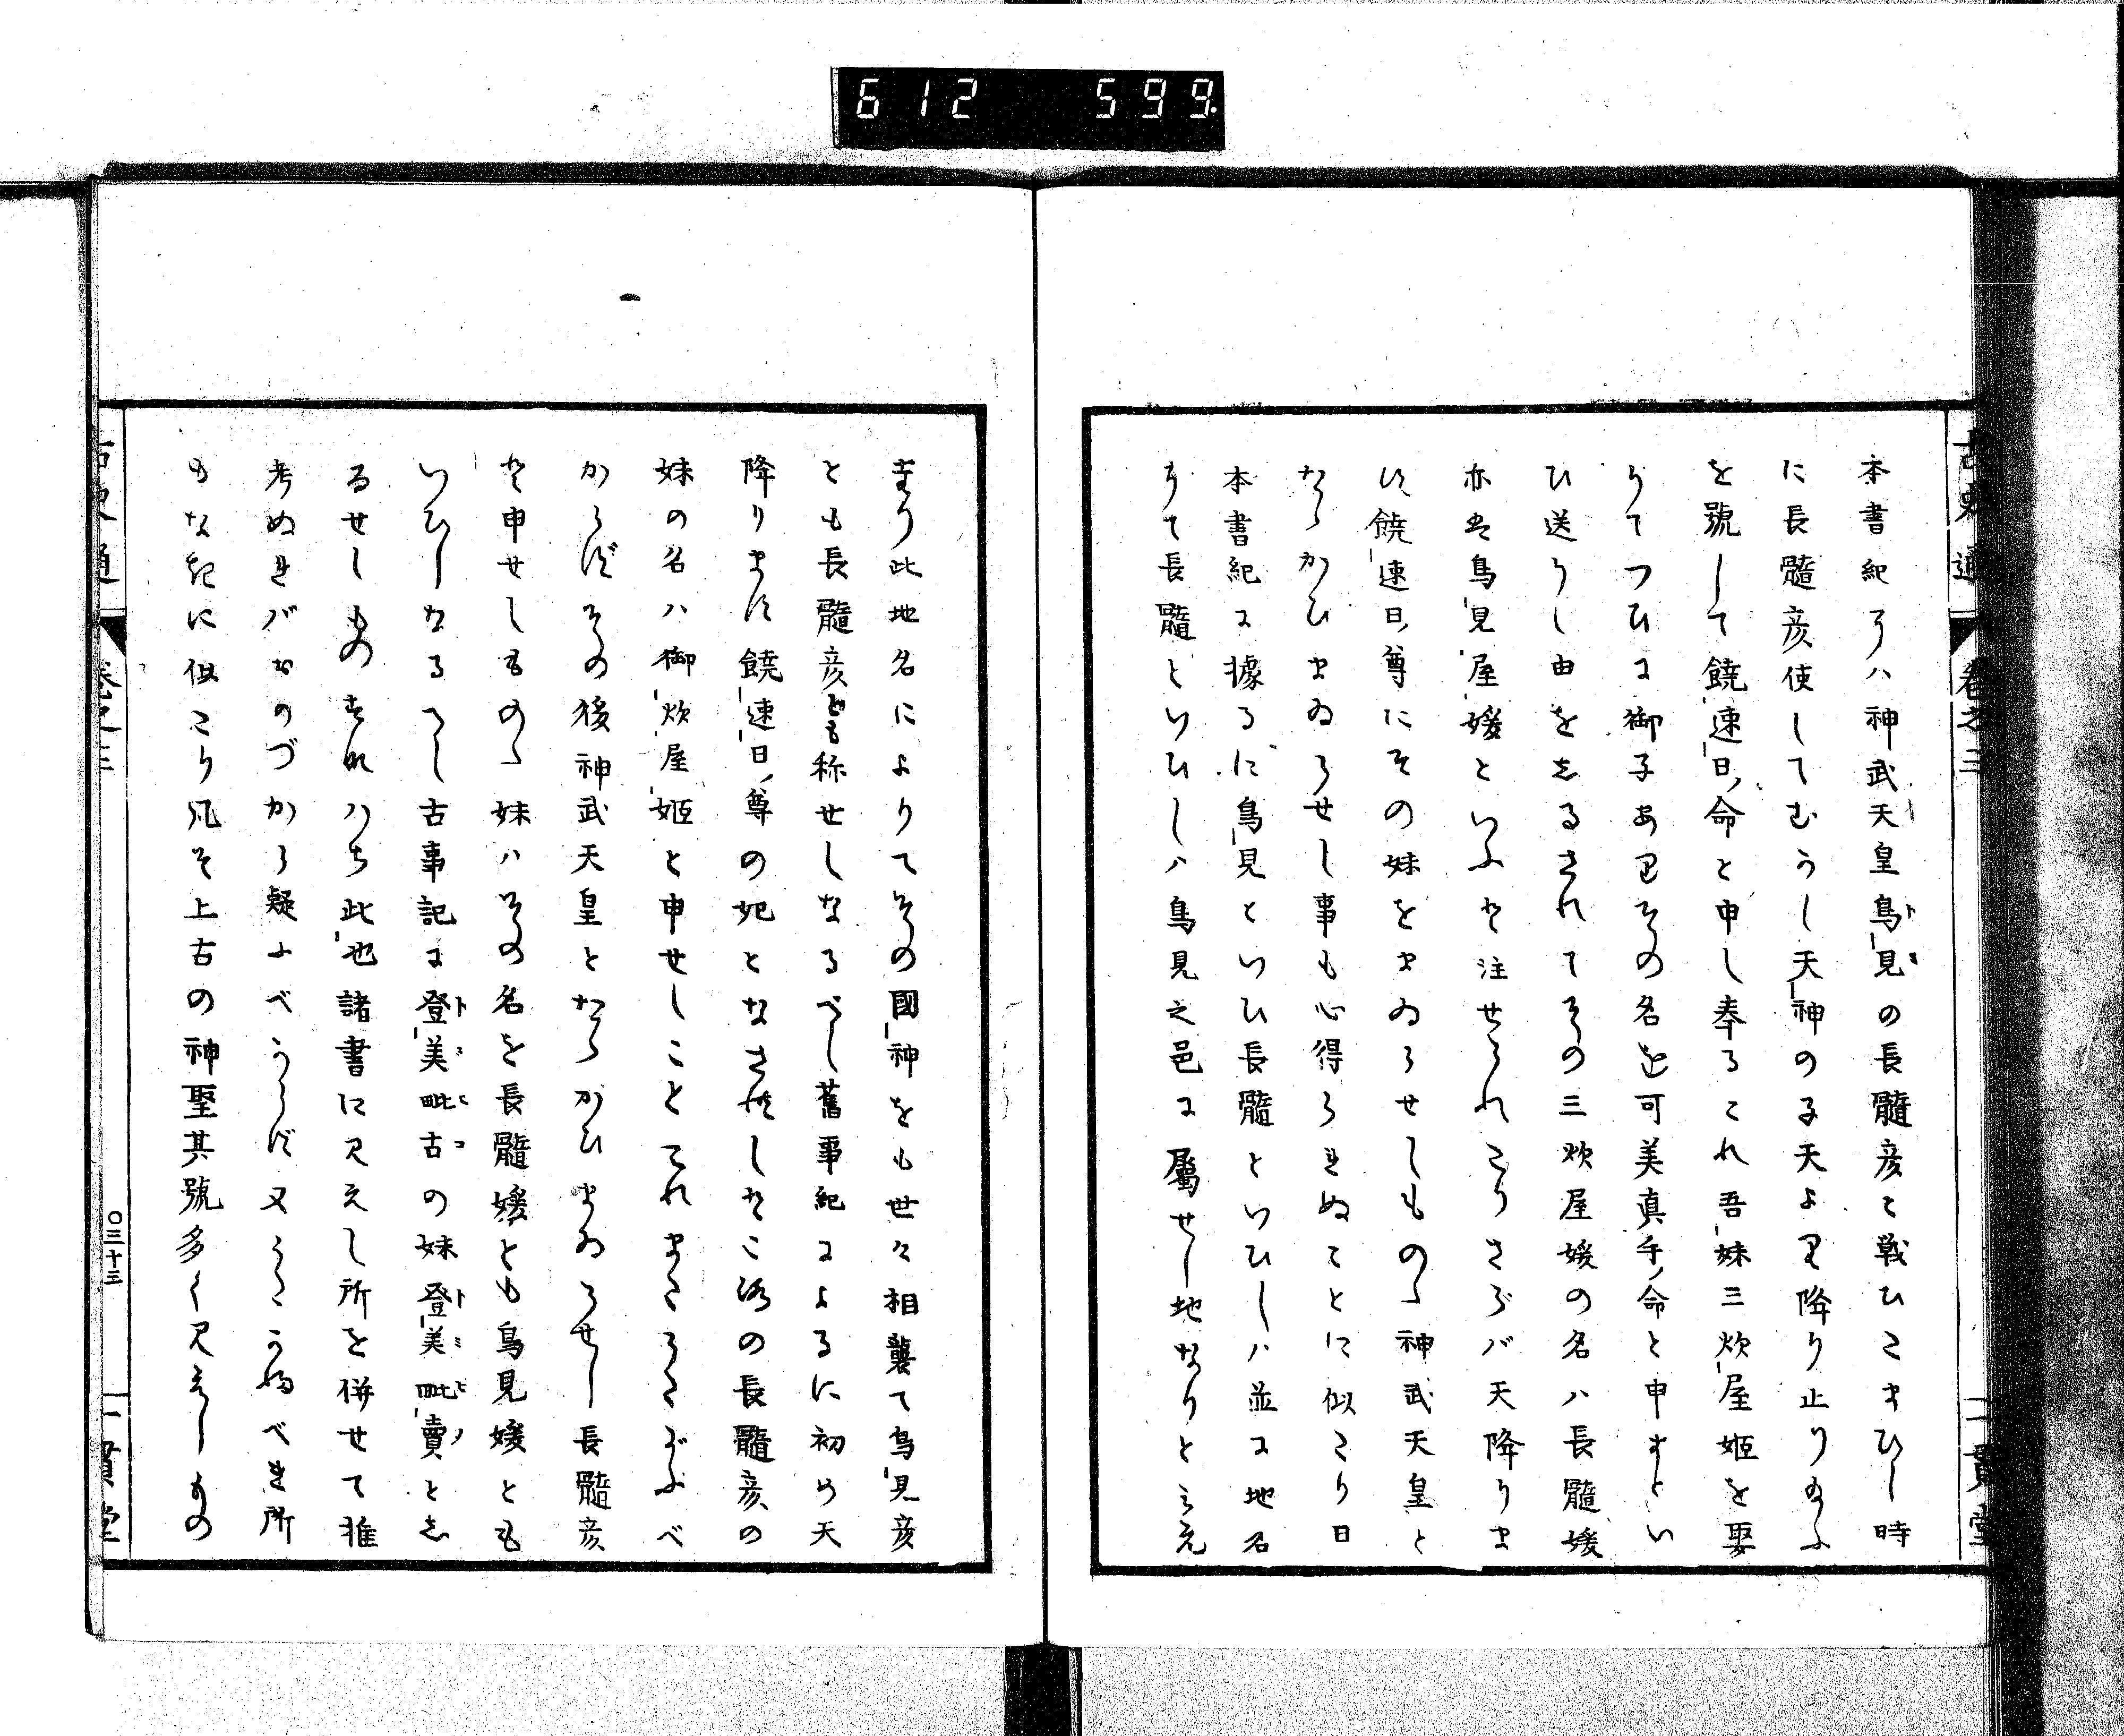 612 599
古史通 卷之三 一貫堂
本書紀にハ神武天皇鳥見の長髓彦と戰ひたまひし時
に長髓彦使してまうし天神の子天より降り止り給ふ
を號して饒速日命と申し奉るこれ吾妹三炊屋姫を娶
りてつひに御子ありその名を可美真手命と申すとい
ひ送りし由をしるされてその三炊屋媛の名ハ長髓媛
亦は鳥見屋媛といふと注せられたりさらバ天降りま
す饒速日尊にその妹をまゐらせしものゝ神武天皇と
たゝかひまゐらせし事も心得られぬことに似たり日
本書紀に據るに鳥見といひ長髓といひしハ並に地名
にて長髓といひしハ鳥見之邑に屬せし地なりと見え
たり此地名によりてその國神をも世々相襲て鳥見彦
とも長髓彦とも称せしなるべし舊事紀によるに初め天
降りました饒速日尊の妃となされしところの長髓彦の
妹の名ハ御炊屋姫と申せしことこれまたうたがふべ
からずその後神武天皇とたゝかひまゐらせし長髓彦
と申せしものゝ妹ハその名を長髓媛とも鳥見媛とも
いひしなるべし古事記に登美毗古の妹登美毗賣とし
るせしものすなハち此也諸書に見えし所を併せて推
考ぬればおのづから疑ふべからず又うたがふべき所
もなきに似たり凡そ上古の神聖其號多く見えしもの
古史通 卷之三 〇三十三 一貫堂